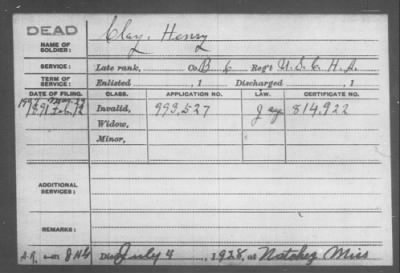 DEAD
NAME OF SOLDIER:
Clay, Henry
SERVICE:
Late rank, Co. B 6 Reg't U.S.C.H.A.
TERM OF SERVICE:
Enlisted , 1 Discharged , 1
DATE OF FILING. CLASS. APPLICATION NO. LAW. CERTIFICATE NO.
1891 Feb. 12 Invalid, 993,527 814,922
Widow,
Minor,
ADDITIONAL SERVICES:
REMARKS:
Died July 4, 1928, at Natchez Miss